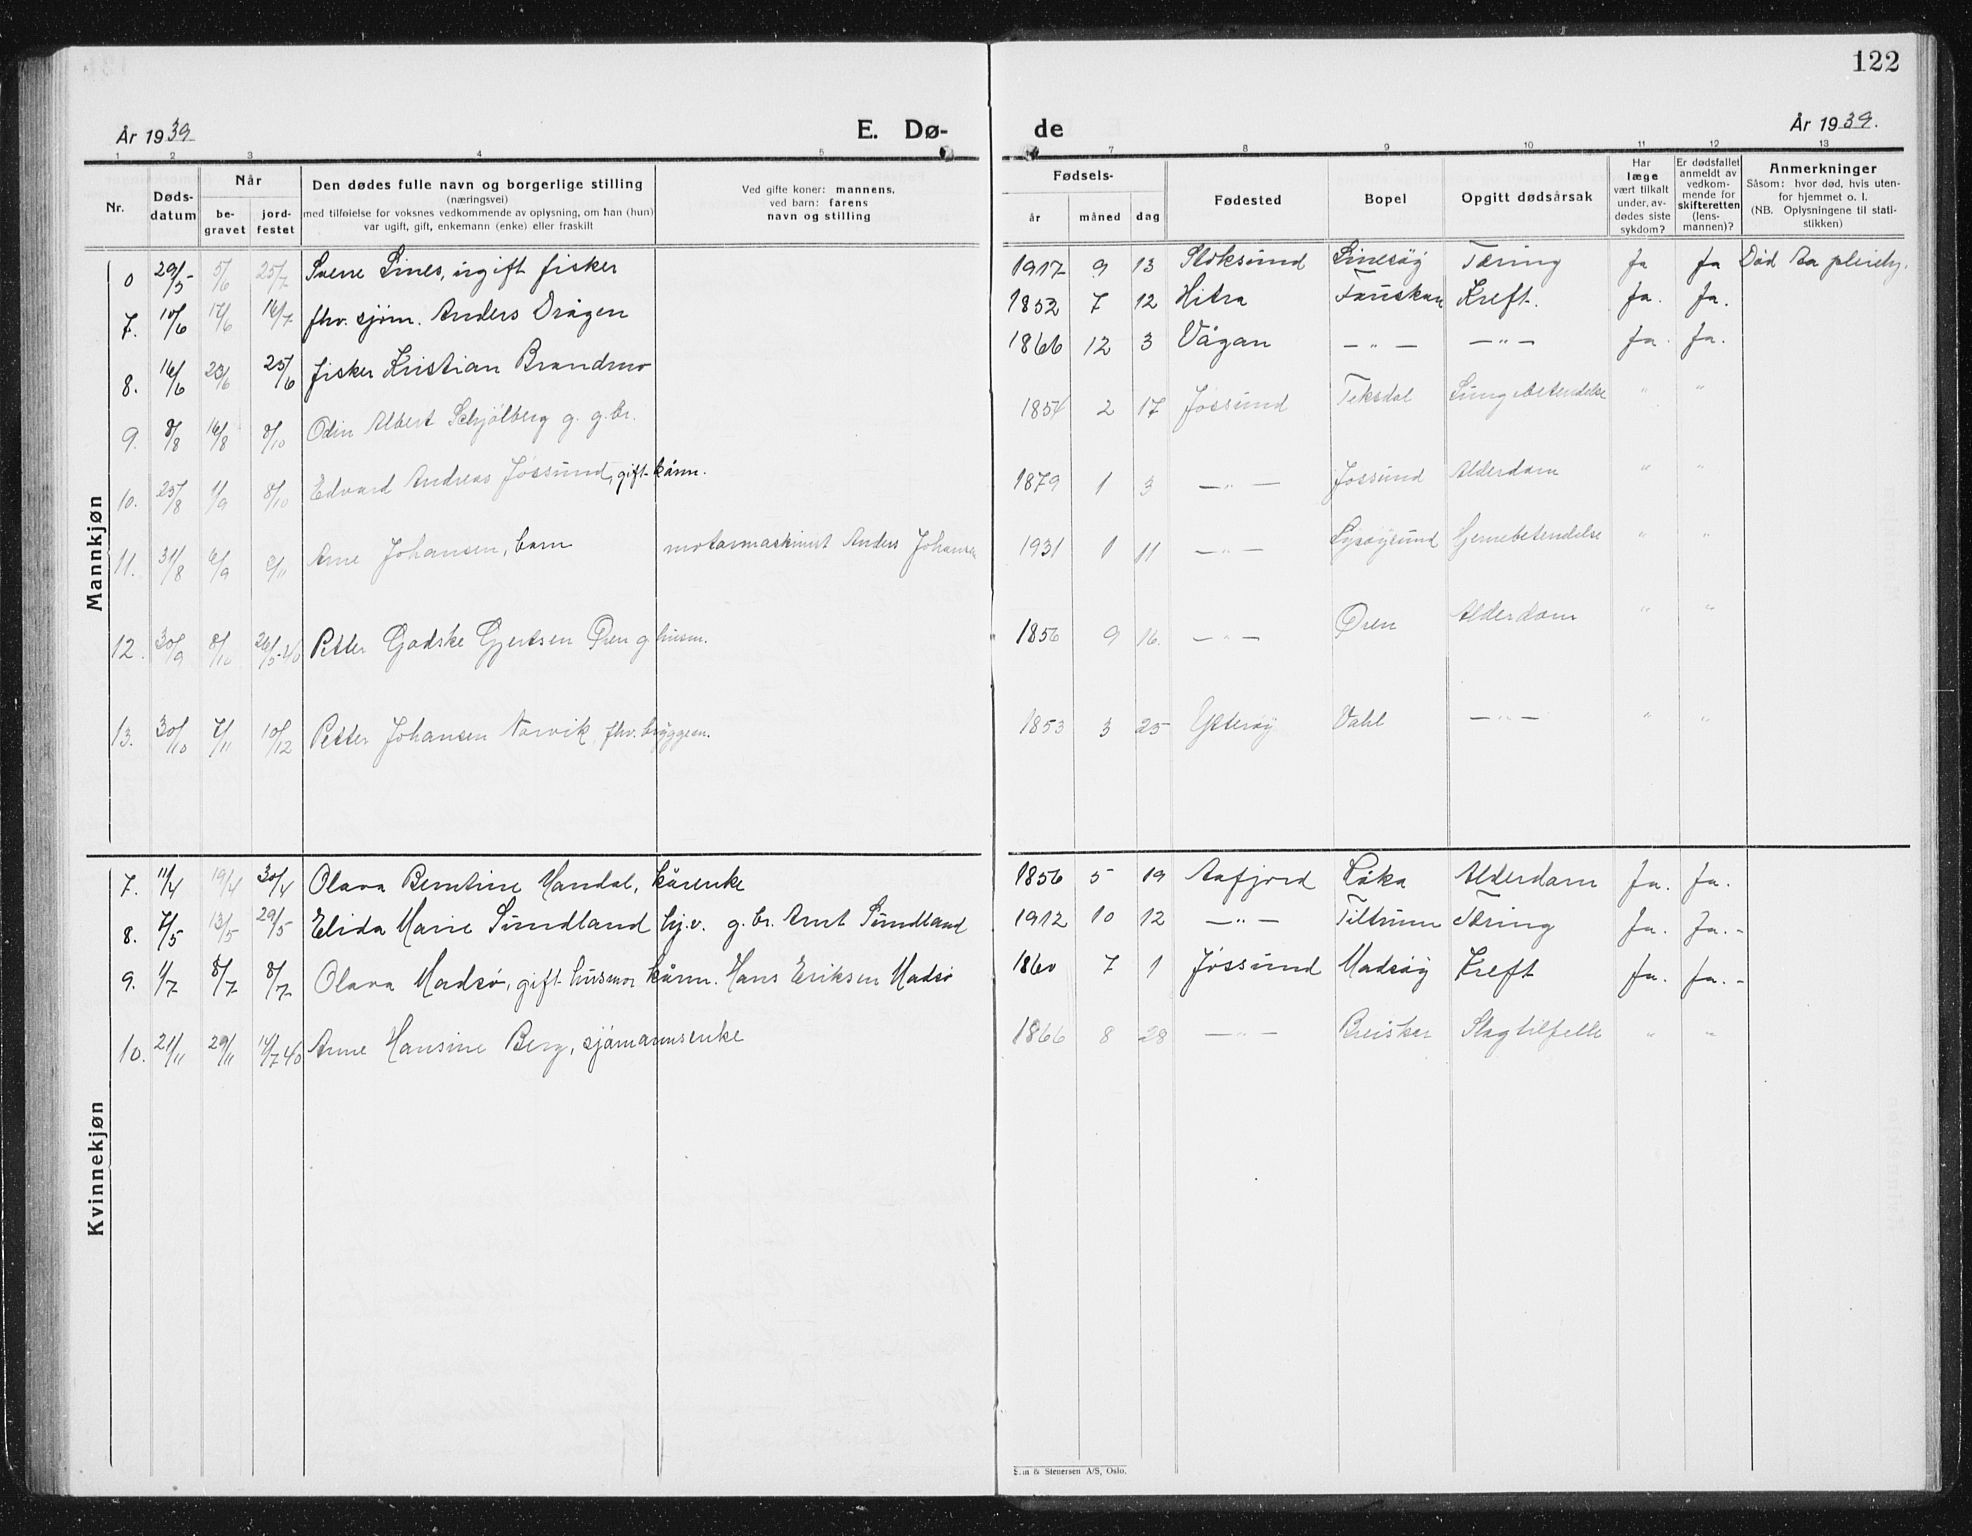 122
År 1939
E. Dø-
de
År 1939.
1 2 3 4 5 7 8 9 10 11 12 13
Nr.
Døds-
datum
Når
be-
gravet
jord-
festet
Den dødes fulle navn og borgerlige stilling
(næringsvei)
med tilføielse for voksnes vedkommende av oplysning, om han (hun)
var ugift, gift, enkemann (enke) eller fraskilt
Ved gifte koner: mannens,
ved barn: farens
navn og stilling
Fødsels-
år måned dag
Fødested
Bopel
Opgitt dødsårsak
Har
læge
vært tilkalt
under, av-
dødes siste
sykdom?
Er dødsfallet
anmeldt av
vedkom-
mende for
skifteretten
(lens-
mannen)?
Anmerkninger
Såsom: hvor død, hvis uten-
for hjemmet o. l.
(NB. Oplysningene til stati-
stikken)
Mannkjøn
0 29/5 5/6 25/7 Sverre Lines, ugift fisker 1917 9 13 Stoksund Linesøy Tæring ja ja Død Aa pleiehj.
7. 10/6 17/6 16/7 fhv. sjøm. Anders Drågen 1852 7 12 Hitra Kreft. Ja. Ja.
8. 16/6 23/6 25/6 fisker Kristian Brandmo 1866 12 3 Vågan — " — — " — Ja. Ja.
9. 8/8 16/8 8/10 Odin Albert Schjølberg g. g.br. 1854 2 17 Jøssund Teksdal Lungebetendelse " "
10. 25/8 1/9 8/10 Edvard Andreas Jøssund, gift kårm. 1879 1 3 — " — Jøssund Alderdom " "
11. 31/8 6/9 Arne Johansen, barn motormaskinist Anders Johansen 1931 1 11 — " — Lysøysund Hjernebetendelse " "
12. 30/9 8/10 26/5-40 Petter Godske Gjertsen Øren g husm. 1856 9 16. — " — Øren Alderdom " "
13. 30/10 7/11 10/12 Petter Johansen Narvik, fhv. byggem. 1853 3 25 Ytterøy Vahl — " — " "
Kvinnekjøn
7. 11/4 19/4 30/4 Olava Berntine Mandal, kårenke 1856 5 19 Aafjord Råka Alderdom Ja. Ja.
8. 7/5 13/5 29/5 Elida Marie Sundland hj.v. g. br. Arnt Sundland 1912 10 12 — " — Tiltrum Tæring Ja. Ja. -
9. 1/7 8/7 8/7 Olava Madsø, gift husmor kårm. Hans Eriksen Madsø 1860 7 1 Jøssund Madsøy Kreft Ja. Ja. -
10. 21/11 29/11 14/7 40 Anne Hansine Berg, sjømannsenke 1866 8 28 — " — Breisker Slagtilfelle " "
& Stenersen A/S, Oslo.